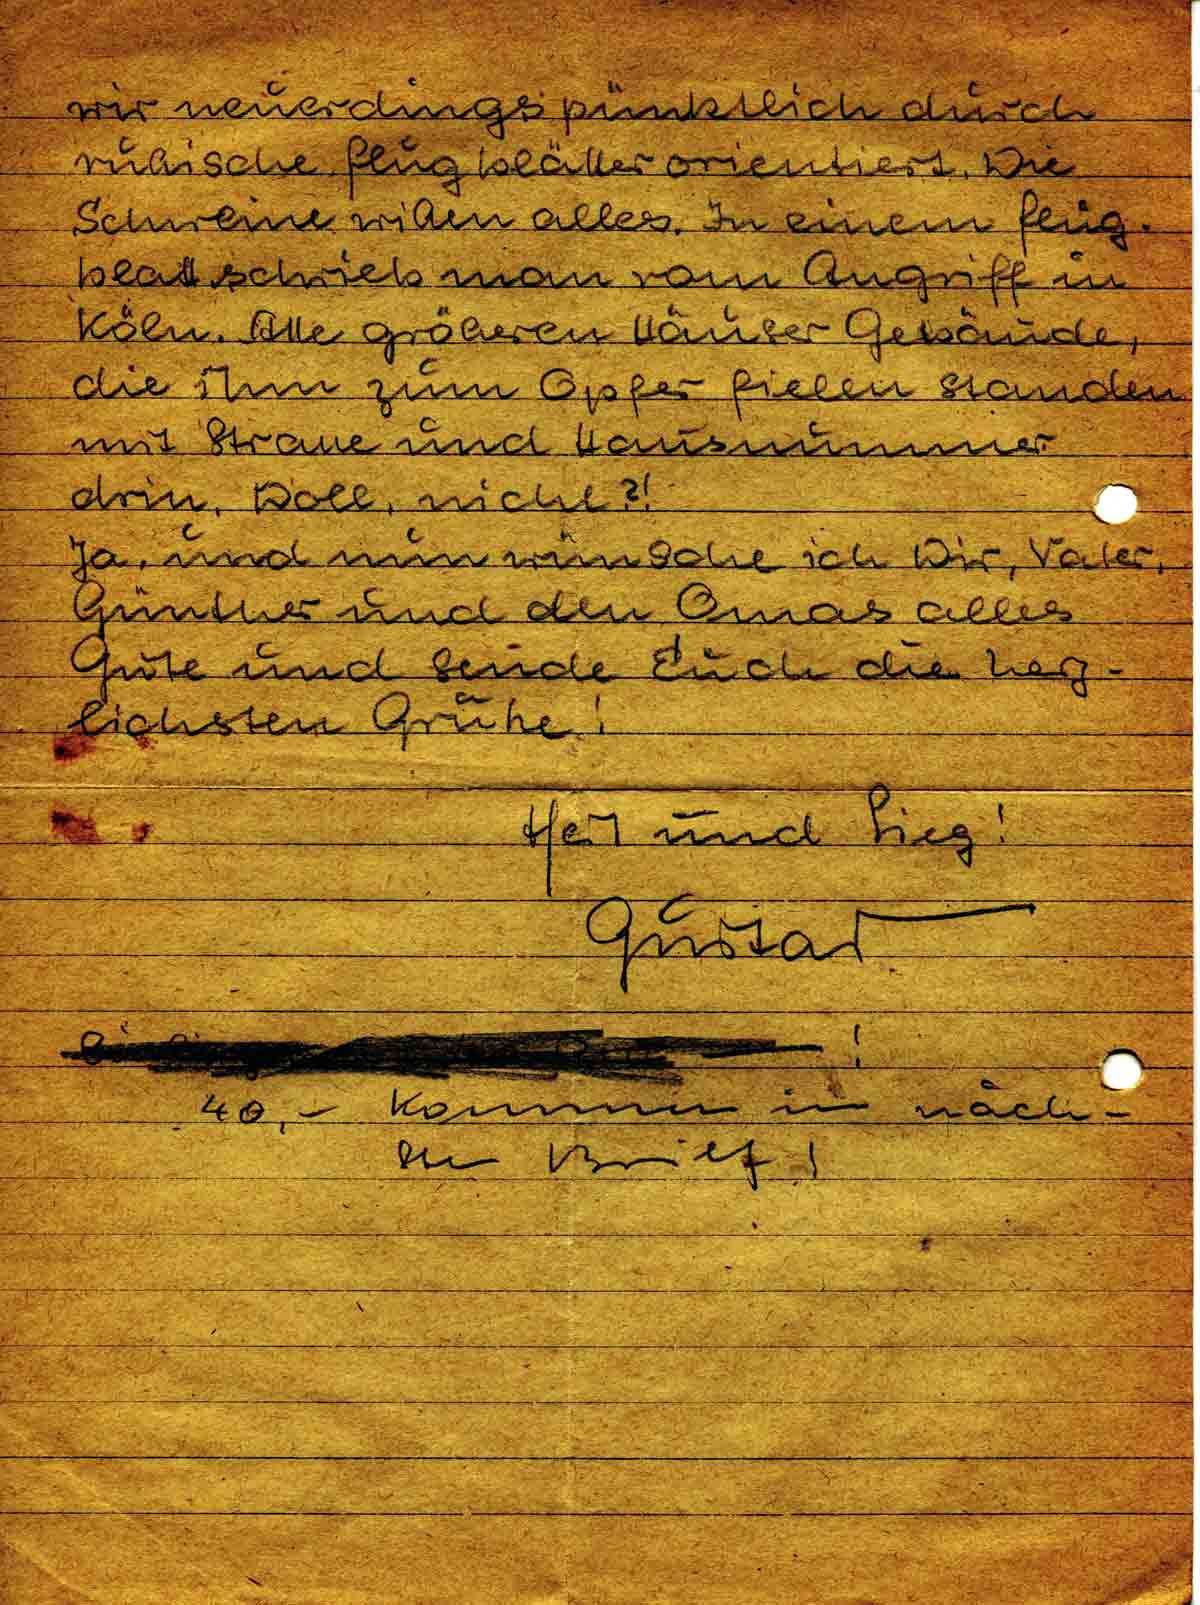 wir neuerdings pünktlich durch
russische Flugblätter orientiert. Die
Schweine wissen alles. In einem Flug-
blatt schrieb man vom Angriff in
Köln. Alle größeren Häuser Gebäude,
die ihm zum Opfer fielen standen
mit Strasse und Hausnummer
drin. Doll, nicht?!
Ja, und nun wünsche ich Dir, Vater,
Günther und den Omas alles
Gute und sende Euch die herz-
lichsten Grüße!
Heil und Sieg!
Gustav
!
40,- Kommen in näch-
sten Brief!